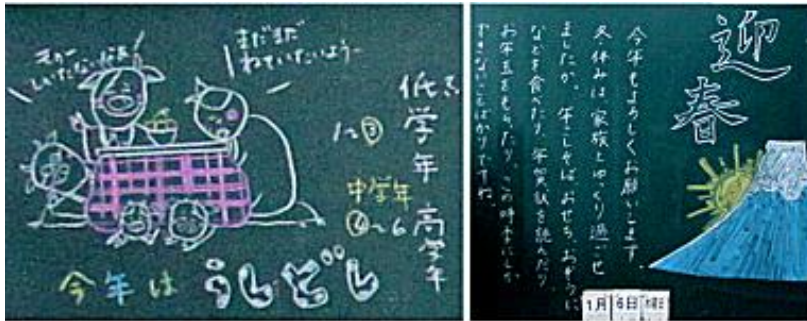 まだまだ
ねていたいよう〜
低学年
1〜③
中学年
④〜6
高学年
今年は うしどし
迎春
今年もよろしくお願いします。
冬休みは家族とゆっくり過ごせ
ましたか。年こしそば、おせち、おぞうに
などを食べたり、年賀状を読んだり、
お年玉をもらったり、この時季にしか
できないことばかりですね。
1月 6日